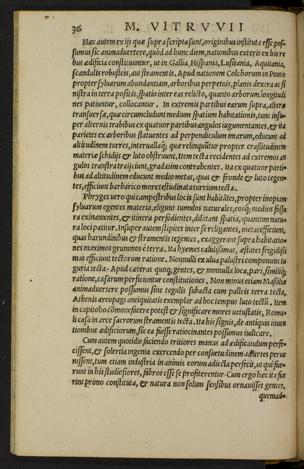 36 M. VITRVVII
Hæc autem ex ijs quæ supra scripta sunt, originibus instituta esse pos-
sumus sic animaduertere, quòd ad hunc diem, nationibus exteris ex his re
bus ædificia constituuntur, ut in Gallia, Hispania, Lusitania, Aquitania,
scandulis robusteis, aut stramentis. Apud nationem Colchorum in Ponto
propter syluarum abundantiam, arboribus perpetuis, planis dextra ac si
nistra in terra positis, spatio inter eas relicto, quanto arborum longitudi
nes patiuntur, collocantur. In extremis partibus earum supra, alteræ
transuersæ, quæ circumcludunt medium spatium habitationis, tunc insu-
per alternis trabibus ex quatuor partibus angulos iugumentantes, & ita
parietes ex arboribus statuentes ad perpendiculum imarum, educunt ad
altitudinem turres, interuallaq́; quæ relinquuntur propter crassitudinem
materiæ schidijs & luto obstruunt, item tecta recidentes ad extremos an
gulos transtra traijciunt, gradatim contrahentes. Ita ex quatuor parti-
bus ad altitudinem educunt medio metas, quas & fronde & luto tegen-
tes, efficiunt barbarico more testudinata turrium tecta.
Phryges uero qui campestribus locis sunt habitantes, propter inopiam
syluarum egentes materia, eligunt tumulos naturales, eosq́; medios fossu
ra exinanientes, & itinera perfodientes, dilatant spatia, quantum natu-
ra loci patitur. Insuper autem stipites inter se religantes, metas efficiunt,
quas harundinibus & stramentis tegentes, exaggerant supra habitatio-
nes maximos grumos è terra. Ita hyemes calidissimas, æstates frigidissi
mas efficiunt tectorum ratione. Nonnulli ex ulua palustri componunt tu
guria tecta. Apud cæteras quoq; gentes, & nonnulla loca, pari, similiq́;
ratione, casarum perficiuntur constitutiones. Non minus etiam Massiliæ
animaduertere possumus sine tegulis subacta cum paleis terra tecta.
Athenis areopagi antiquitatis exemplar ad hoc tempus luto tectũ, item
in capitolio commonefacere potest & significare mores uetustatis, Romu
li casa in arce sacrorum stramentis tecta. Ita his signis, de antiquis inuen
tionibus ædificiorum, sic ea fuisse ratiocinantes possumus iudicare.
Cum autem quotidie faciendo tritiores manus ad ædificandum perfe-
cissent, & solertia ingenia exercendo per consuetudinem ad artes perue
nissent, tum etiam industria in animis eorum adiecta perfecit, ut qui fue-
runt in his studiosiores, fabros esse se profiterentur. Cum ergo hæc ita fue
rint primo constituta, & natura non solum sensibus ornauisset gentes,
quemad-